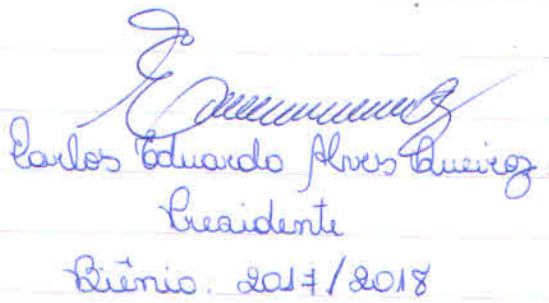 Carlos Eduardo Alves Queiroz
Presidente
Biênio. 2017/2018